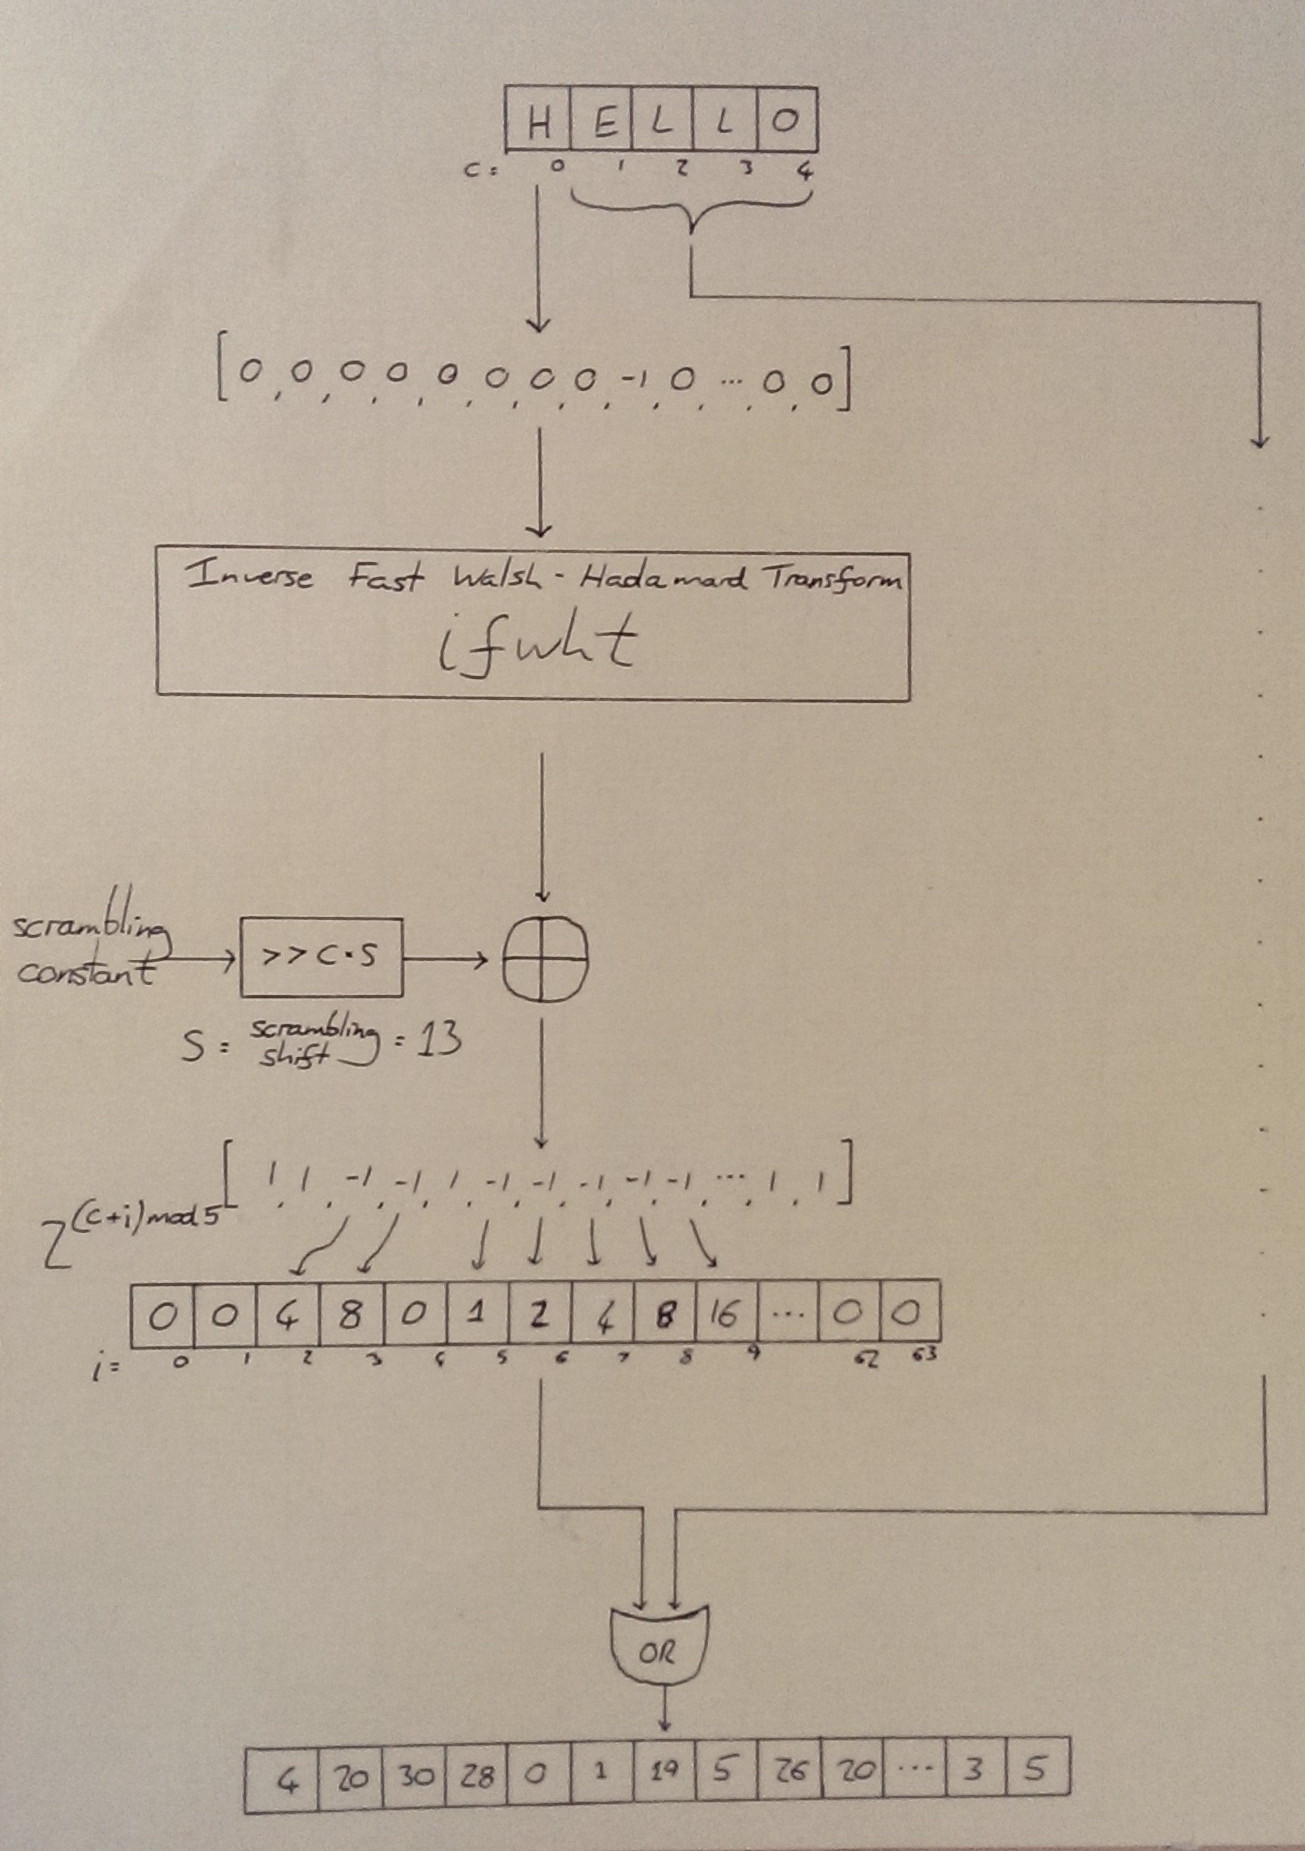 H E L L O
c = 0 1 2 3 4
[0, 0, 0, 0, 0, 0, 0, 0, -1, 0, ... 0, 0]
Inverse Fast Walsh - Hadamard Transform
ifwht
scrambling
constant
>> C · S
S = scrambling shift = 13
[1, 1, -1, -1, 1, -1, -1, -1, -1, -1, ... 1, 1]
2^(c+i) mod 5
0 0 4 8 0 1 2 4 8 16 ... 0 0
i = 0 1 2 3 4 5 6 7 8 9 62 63
OR
4 20 30 28 0 1 19 5 26 20 ... 3 5